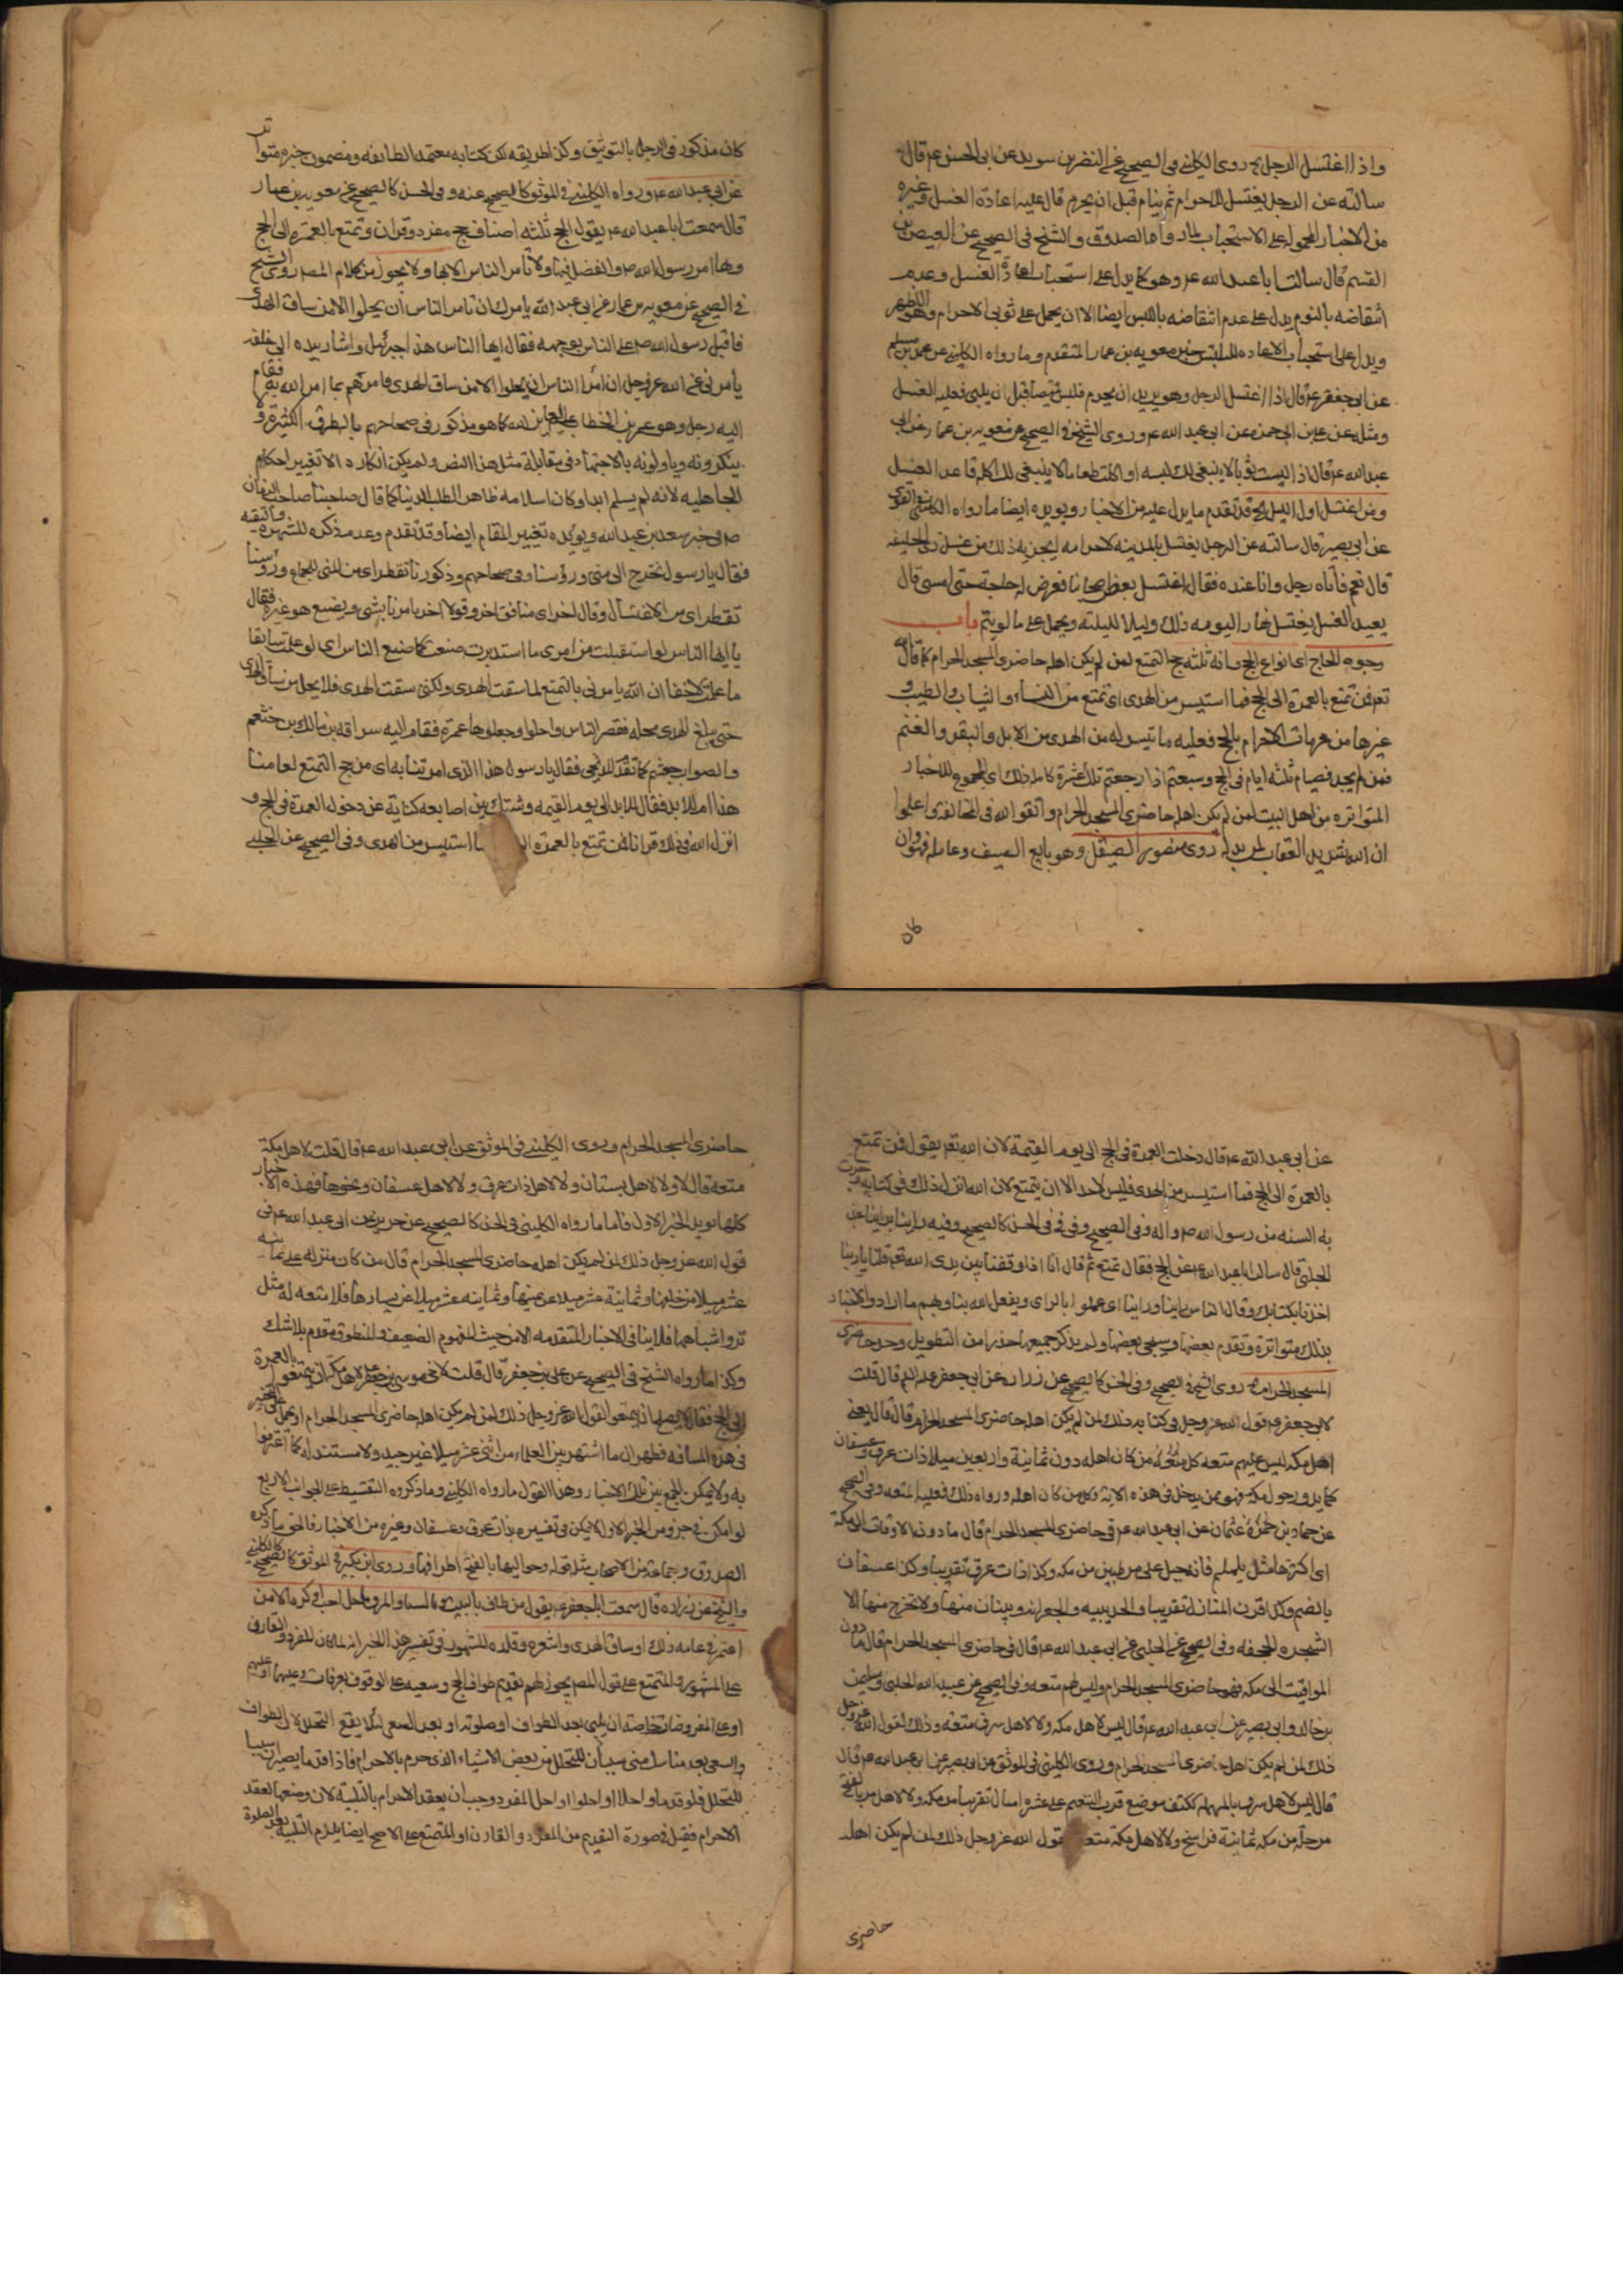 واذا اغتسل الرجل الخ روى الكليني في الصحيح عن النضر بن سويد عن ابي الحسن عم قال
سالته عن الرجل يغتسل للاحرام ثم ينام قبل ان يحرم قال عليه اعادة الغسل وغيره
من الاخبار المحمولة على الاستحباب لما رواه الصدوق والشيخ في الصحيح عن العيص بن
القسم قال سالت ابا عبد الله عم وهو كما يدل على استحباب اعادة الغسل وعدم
انتقاضه بالنوم يدل على عدم انتقاضه باللبس ايضا الا ان يحمل على ثوبي الاحرام وهو الاظهر
ويدل على استحباب الاعاده للبس خبر معويه بن عمار المتقدم وما رواه الكليني عن محمد بن مسلم
عن ابي جعفر عم قال اذا اغتسل الرجل وهو يريد ان يحرم فلبس قميصا قبل ان يلبي فعليه الغسل
ومثله عن علي بن ابي حمزه عن ابي عبد الله عم وروى الشيخ في الصحيح عن معويه بن عمار عن ابي
عبد الله عم قال اذا لبست ثوبا لا ينبغي لك لبسه او اكلت طعاما لا ينبغي لك اكله فاعد الغسل
ومن اغتسل اول الليل الخ قد تقدم ما يدل عليه من الاخبار ويويده ايضا ما رواه الكليني
عن ابي بصير قال سالته عن الرجل يغتسل بالمدينه لاحرامه ايجزيه ذلك من غسل ذي الحليفه
قال نعم فاتاه رجل وانا عنده فقال اغتسل بعض اصحابنا فعرض له حاجة حتى امسى قال
يعيد الغسل يغتسل نهارا ليومه ذلك وليلا لليلته ويحمل على ما لو ينم باب
وجوه الحاج اي انواع الحج وانه ثلثه حج التمتع لمن لم يكن اهله حاضري المسجد الحرام كما قال الله
تعم فمن تمتع بالعمرة الى الحج فما استيسر من الهدى اي تمتع من النساء والثياب والطيب و
غيرها من محرمات الاحرام بالحج فعليه ما تيسر له من الهدى من الابل والبقر والغنم
فمن لم يجد فصيام ثلثه ايام في الحج وسبعة اذا رجعتم تلك عشرة كامله ذلك اي المجموع للاخبار
المتواتره من اهل البيت لمن لم يكن اهله حاضري المسجد الحرام واتقوا الله في المخالفه واعلموا
ان الله شديد العقاب روى منصور الصيقل وهو بايع السيف وعامله فهو وان
كان
كان مذكور في الرجال بالتوثيق وكذا طريقه لكن كتابه معتمد الطائفه ومضمون خبره متواتر
عن ابي عبد الله عم ورواه الكليني في الموثق كالصحيح عنه وفي الحسن كالصحيح عن معويه بن عمار
قال سمعت ابا عبد الله عم يقول الحج ثلثه اصناف حج مفرد وقران وتمتع بالعمرة الى الحج
وبها امر رسول الله ص والفضل فيها ولا نامر الناس الا بها ولا يجوز من كلام المص روى الشيخ
في الصحيح عن معويه بن عمار عن ابي عبد الله يامرك ان تامر الناس ان يحلوا الا من ساق الهدى
فاقبل رسول الله ص على الناس بوجهه فقال ايها الناس هذا جبرئيل واشار بيده الى خلفه
يأمرني عن الله عز وجل ان آمر الناس ان يحلوا الا من ساق الهدى فامرهم بما امر الله به فقام
اليه رجل وهو عمر بن الخطاب كما هو مذكور في صحاحهم بالطرق الكثيرة و
ينكرونه وياولونه بالاجتهاد في مقابلة مثل هذا النص ولم يكن انكاره الا لتغيير احكام
الجاهليه لانه لم يسلم ابدا وكان اسلامه ظاهرا لطلب الدنيا كما قال صاحبنا صاحب الزمان
ص في خبر سعد بن عبد الله ويويده تغيير المقام ايضا وقد تقدم وعدم ذكره للشهره والتقيه
فقال يا رسول الله نخرج الى منى ورؤسنا وفي صحاحهم وذكورنا تقطر اي من المنى للجماع ورؤسنا
تقطر اي من الاغتسال وقال اخر اي منافق اخر وقولا اخر يامرنا بشي ويصنع هو غيره فقال
يا ايها الناس لو استقبلت من امري ما استدبرت صنعت كما صنع الناس اي لو علمت سابقا
ما علمت لاحقا ان الله يامرني بالتمتع لما سقت الهدى ولكني سقت الهدى فلا يحل من ساق الهدى
حتى يبلغ الهدى محله فقصر الناس واحلوا وجعلوها عمرة فقام اليه سراقه بن مالك بن خثعم
والصواب جعشم كما تقدم المدلجي فقال يا رسول الله هذا الذي امرتنا به اي من حج التمتع لعامنا
هذا ام للابد فقال لا بل للابد الى يوم القيمه وشبك بين اصابعه كناية عن دخول العمرة في الحج و
انزل الله في ذلك قرانا فمن تمتع بالعمرة الى ما استيسر من الهدى وفي الصحيح عن الحلبي
عن ابي عبد الله عم قال دخلت العمرة في الحج الى يوم القيمة لان الله تعم يقول فمن تمتع
بالعمرة الى الحج فما استيسر من الهدى فليس لاحد الا ان يتمتع لان الله انزل ذلك في كتابه وجرت
به السنه من رسول الله ص واله وفي الصحيح وفي في في الحسن كالصحيح
الحلبي قال سالت ابا عبد الله عم عن الحج فقال تمتع ثم قال انا اذا وقفنا بين يدي الله تعم قلنا يا ربنا
اخذنا بكتابك وقال الناس راينا وراينا اي عملوا بالراي ويفعل الله بنا وبهم ما اراد والاخبار
بذلك متواترة وتقدم بعضها وسيجي بعضها ولم يذكر جميعها حذرا من التطويل وحد حاضري
المسجد الحرام روى الشيخ في الصحيح وفي الحسن كالصحيح عن زراره عن ابي جعفر عم قال قلت
لابي جعفر عم قول الله عز وجل في كتابه ذلك لمن لم يكن اهله حاضري المسجد الحرام قال قال يعني
اهل مكه ليس عليهم متعه كل من كان اهله دون ثمانية واربعين ميلا ذات عرق وعسفان
كما يدور حول مكه فهو ممن يدخل في هذه الاية وكل من كان اهله وراء ذلك فعليه المتعه وفي الصحيح
عن حماد بن عثمان عن ابي عبد الله عم في حاضري المسجد الحرام قال ما دون الاوقات الى مكة
اي اكثرها مثل يلملم فانه جبل على مرحلتين من مكه وكذا ذات عرق تقريبا وكذا عسفان
بالضم وكذا قرن المنازل تقريبا والحديبيه والجعرانه منها ولا تخرج منها الا
الشجره والجحفه وفي الصحيح عن الحلبي عن ابي عبد الله عم قال في حاضري المسجد الحرام قال ما دون
المواقيت الى مكه فهو حاضري المسجد الحرام وليس لهم متعه وفي الصحيح عن عبيد الله الحلبي وسليمن
بن خالد وابي بصير عن ابي عبد الله عم قال ليس لاهل مكه ولا لاهل سرف متعه وذلك لقول الله عز وجل
ذلك لمن لم يكن اهله حاضري المسجد الحرام وروى الكليني في الموثق عن ابي بصير عن ابي عبد الله عم قال
قال ليس لاهل سرف بالمهمله ككتف موضع قرب التنعيم على عشره اميال تقريبا من مكه ولا لاهل مر بالفتح
مرحلة من مكه ثمانية فراسخ ولا لاهل مكة متعه يقول الله عز وجل ذلك لمن لم يكن اهله
حاضري
حاضري المسجد الحرام وروى الكليني في الموثق عن ابي عبد الله عم قال قلت لاهل مكة
متعه قال لا ولا لاهل بستان ولا لاهل ذات عرق ولا لاهل عسفان ونحوها فهذه الاخبار
كلها تويد الخبر الاول فاما ما رواه الكليني في الحسن كالصحيح عن حريز عن ابي عبد الله عم في
قول الله عز وجل ذلك لمن لم يكن اهله حاضري المسجد الحرام قال من كان منزله على ثمانيه
عشر ميلا من خلفها وثمانية عشر ميلا عن يمينها وثمانيه عشر ميلا عن يسارها فلا متعه له مثل
مر واشباهها فلا ينافي الاخبار المتقدمه الا من حيث المفهوم الضعيف والمنطوق مقدم بلا شك
وكذا ما رواه الشيخ في الصحيح عن علي بن جعفر قال قلت لاخي موسى بن جعفر لاهل مكه ان يتمتعوا بالعمرة
الى الحج فقال لا يصلح ان يتمتعوا لقول الله عز وجل ذلك لمن لم يكن اهله حاضري المسجد الحرام
في هذه المسافه فظهر ان ما اشتهر بين العلماء من اثني عشر ميلا غير جيد ولا مستند له كما اعترفوا
به ولا يمكن الجمع بين تلك الاخبار وهذا القول وما رواه الكليني وما ذكروه التقسيط على الجوانب الاربع
لو امكن في جزو من الخبر الاول لا يمكن في تفسيره بذات عرق وعسفان وغيره من الاخبار فالحق ما ذكره
الصدوق وجماعة من الاصحاب مثله قوله وحواليها بالفتح اطرافها وروى ابن بكير في الموثق كالصحيح كالكليني
والشيخ عن زراره قال سمعت ابا جعفر عم يقول من طاف بالبيت وبالصفا والمروة احل احب او كره الا من
اعتمر في عامه ذلك او ساق الهدى واشعره وقلده المشهور في تفسير هذا الخبر انه لما كان للمفرد والقارن
على المشهور والمتمتع على قول المص يجوز لهم تقديم طواف الحج وسعيه على الوقوف بعرفات
يلبي بعد الطواف او صلوته او بعد السعي لئلا يقع التحلل لان الطواف
والسعي بعد مناسك منى سببان للتحلل من بعض الاشياء الذي حرم بالاحرام فاذا قدما يصيران سببا
للتحلل فلو قدما واحلا او احلوا او احل المفرد وجب ان يعقد الاحرام بالتلبية
الاحرام فقيل في صورة التقديم من المفرد والقارن او المتمتع على الاصح ايضا يلزم التلبيه بعد الصلوة